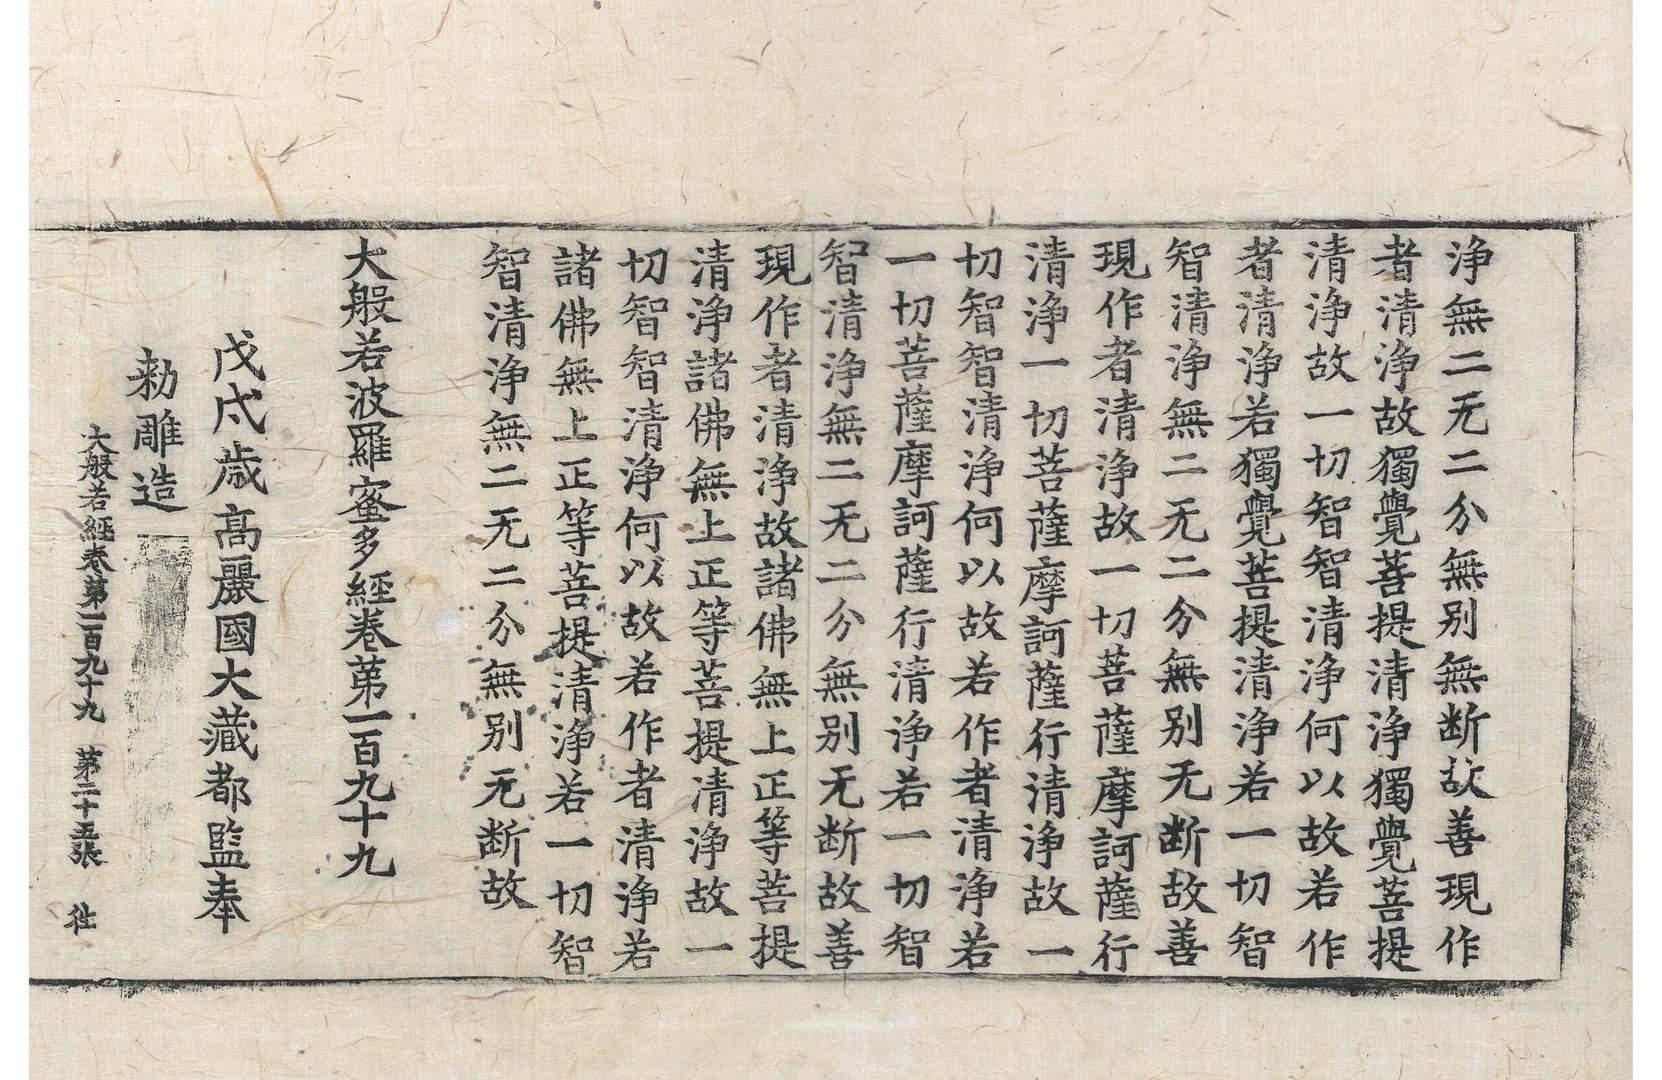 浄無二无二分無别無断故善現作
者清浄故獨覺菩提清浄獨覺菩提
清浄故一切智智清浄何以故若作
者清浄若獨覺菩提清浄若一切智
智清浄無二无二分無别无断故善
現作者清浄故一切菩薩摩訶薩行
清浄一切菩薩摩訶薩行清浄故一
切智智清浄何以故若作者清浄若
一切菩薩摩訶薩行清浄若一切智
智清浄無二无二分無别无断故善
現作者清浄故諸佛無上正等菩提
清浄諸佛無上正等菩提清浄故一
切智智清浄何以故若作者清浄若
諸佛無上正等菩提清浄若一切智
智清浄無二无二分無别无断故
大般若波羅蜜多經卷第一百九十九
戊戌歳髙麗國大藏都監奉
勑雕造
大般若經卷第一百九十九 第二十五張 徃